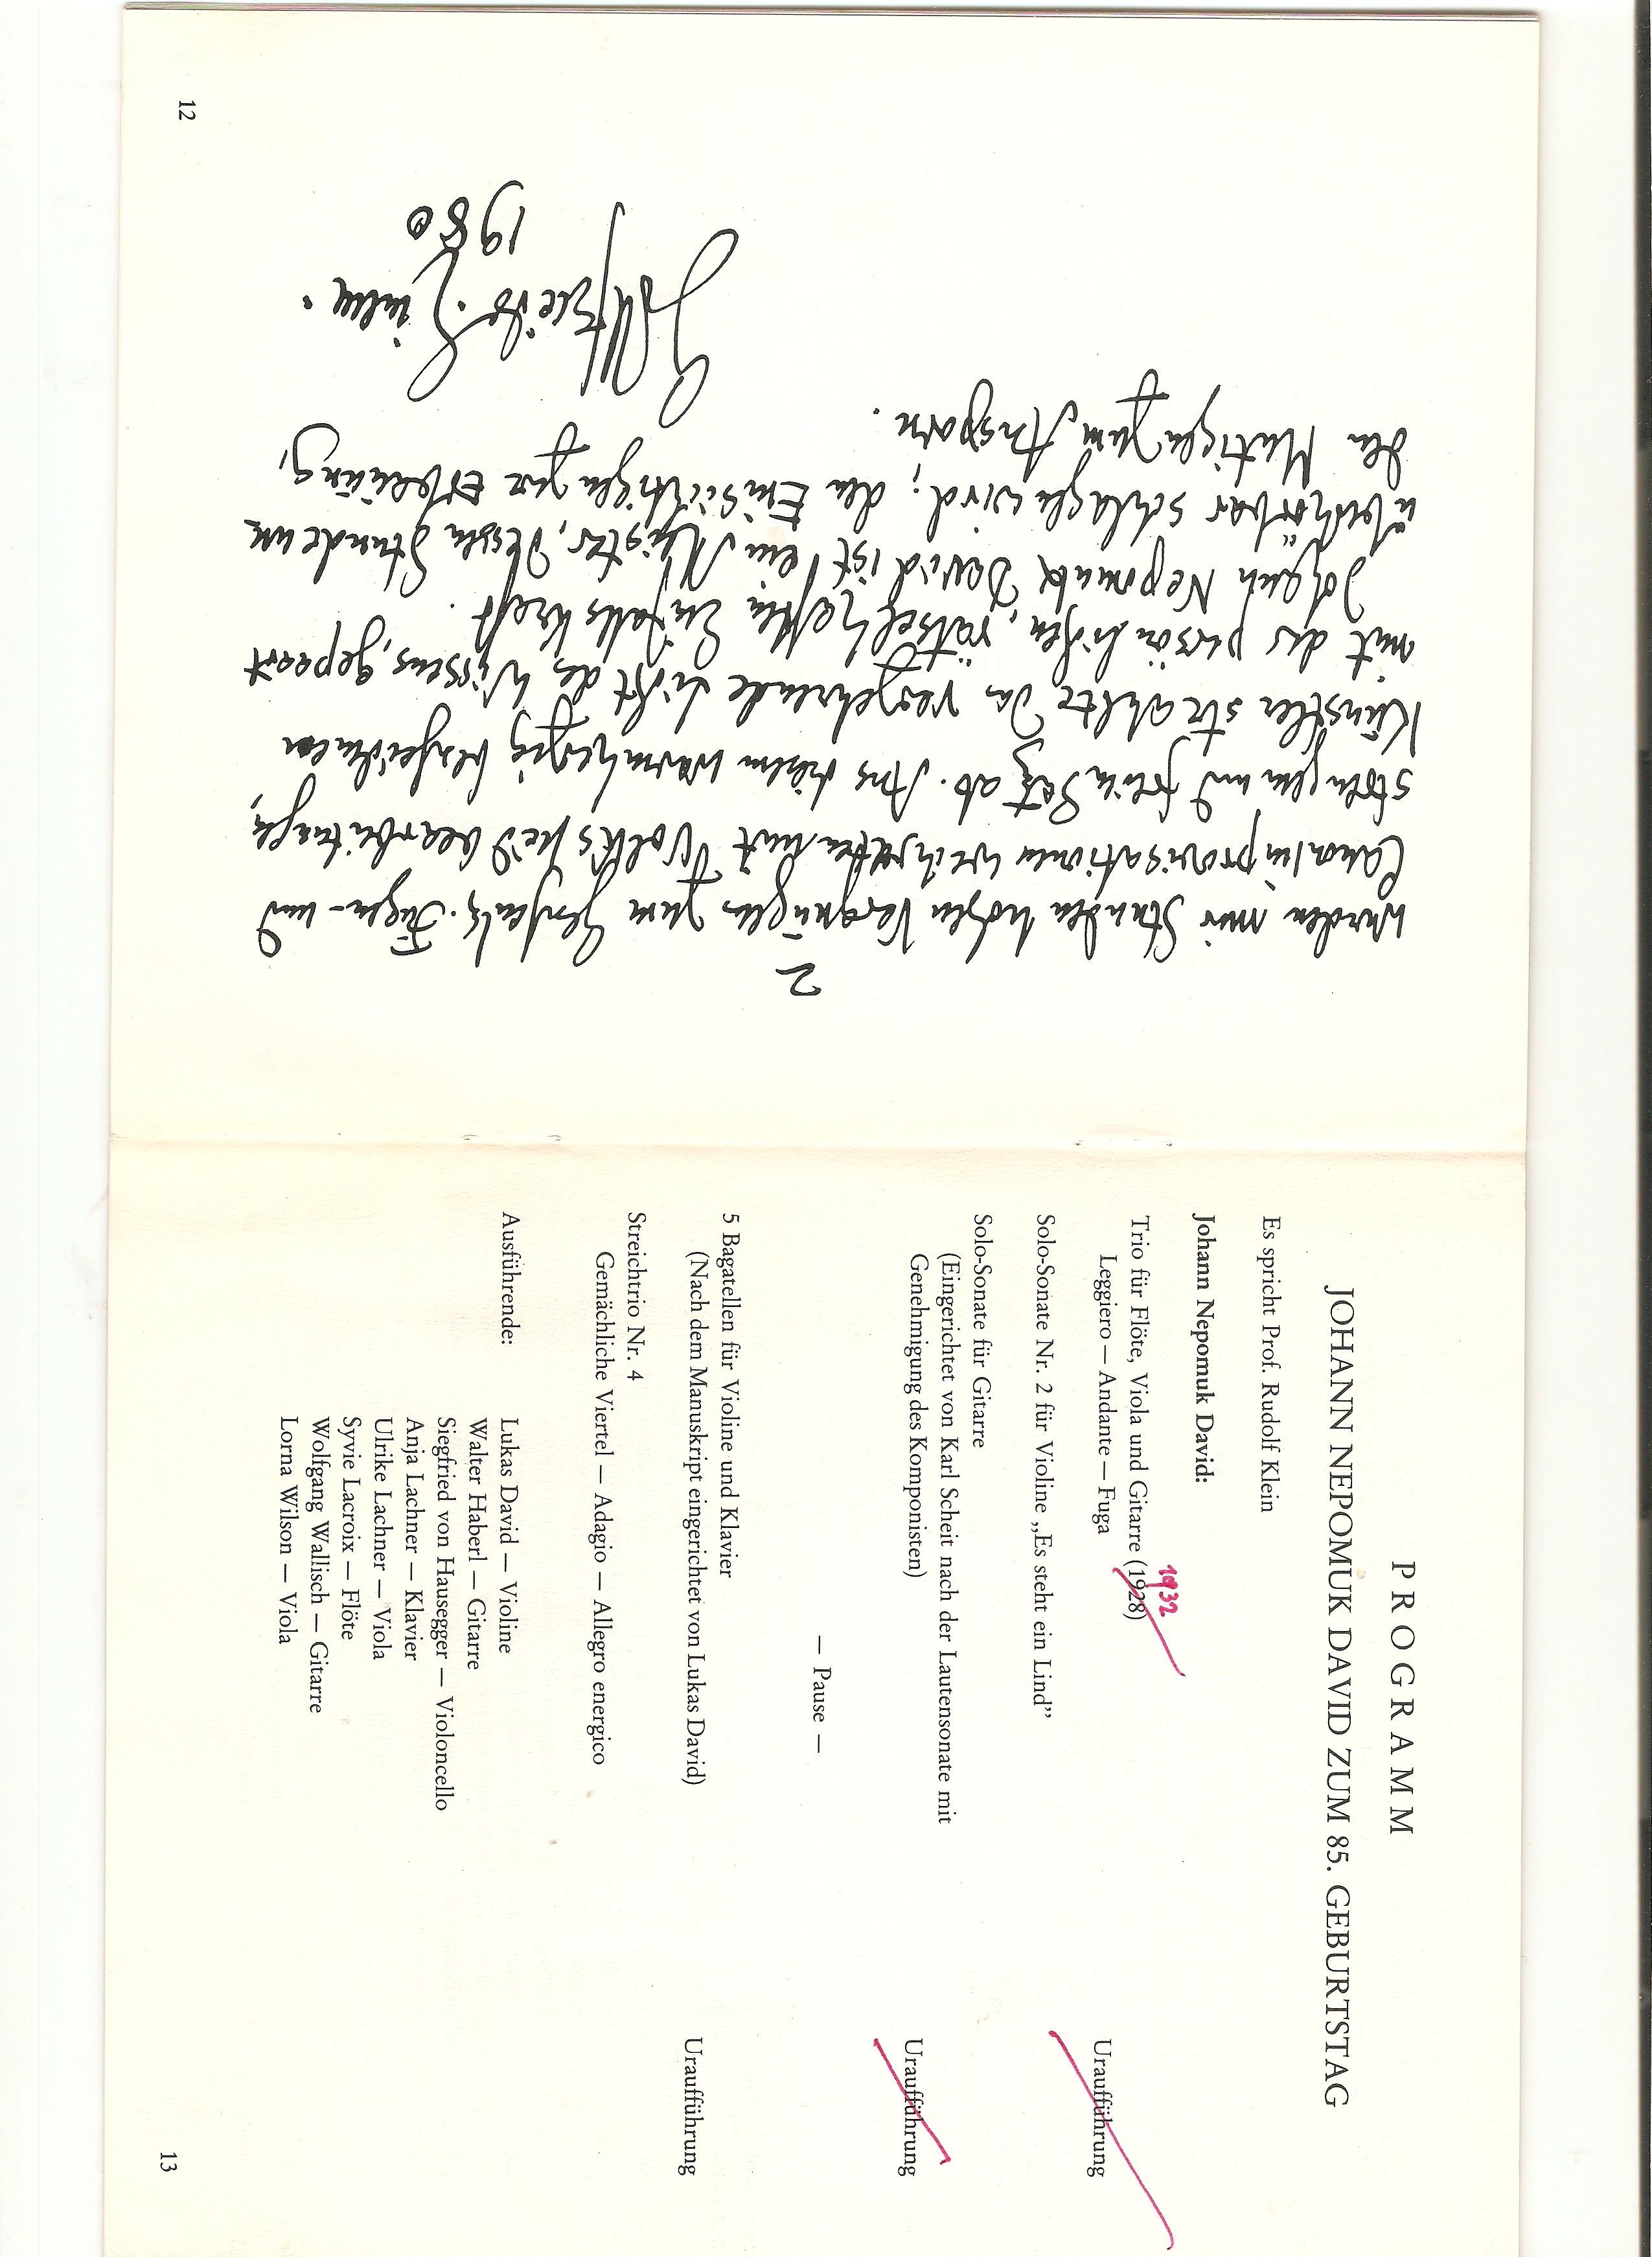 2
wurden mir Stunden hohen Vergnügens zum Geschenk. Fugen- und
Canonimprovisationen wechselten mit Volksliedbearbeitungen,
strengem und freiem Satz ab. Aus diesem warmherzig
Künstler strahlte das verzehrende Licht des Wissens, gepaart
mit der persönlichen, rätselhaften Einfallskraft.
Johann Nepomuk David ist ein Meister, dessen Stunde un
überhörbar schlagen wird; den Einsichtigen zur Erbauung,
den Mutigen zum Ansporn.
1980
12
PROGRAMM
JOHANN NEPOMUK DAVID ZUM 85. GEBURTSTAG
Es spricht Prof. Rudolf Klein
Johann Nepomuk David:
1932
Trio für Flöte, Viola und Gitarre (1928)
Leggiero — Andante — Fuga Uraufführung
Solo-Sonate Nr. 2 für Violine „Es steht ein Lind”
Solo-Sonate für Gitarre
(Eingerichtet von Karl Scheit nach der Lautensonate mit
Genehmigung des Komponisten) Uraufführung
— Pause —
5 Bagatellen für Violine und Klavier
(Nach dem Manuskript eingerichtet von Lukas David) Uraufführung
Streichtrio Nr. 4
Gemächliche Viertel — Adagio — Allegro energico
Ausführende: Lukas David — Violine
Walter Haberl — Gitarre
Siegfried von Hausegger — Violoncello
Anja Lachner — Klavier
Ulrike Lachner — Viola
Syvie Lacroix — Flöte
Wolfgang Wallisch — Gitarre
Lorna Wilson — Viola
13